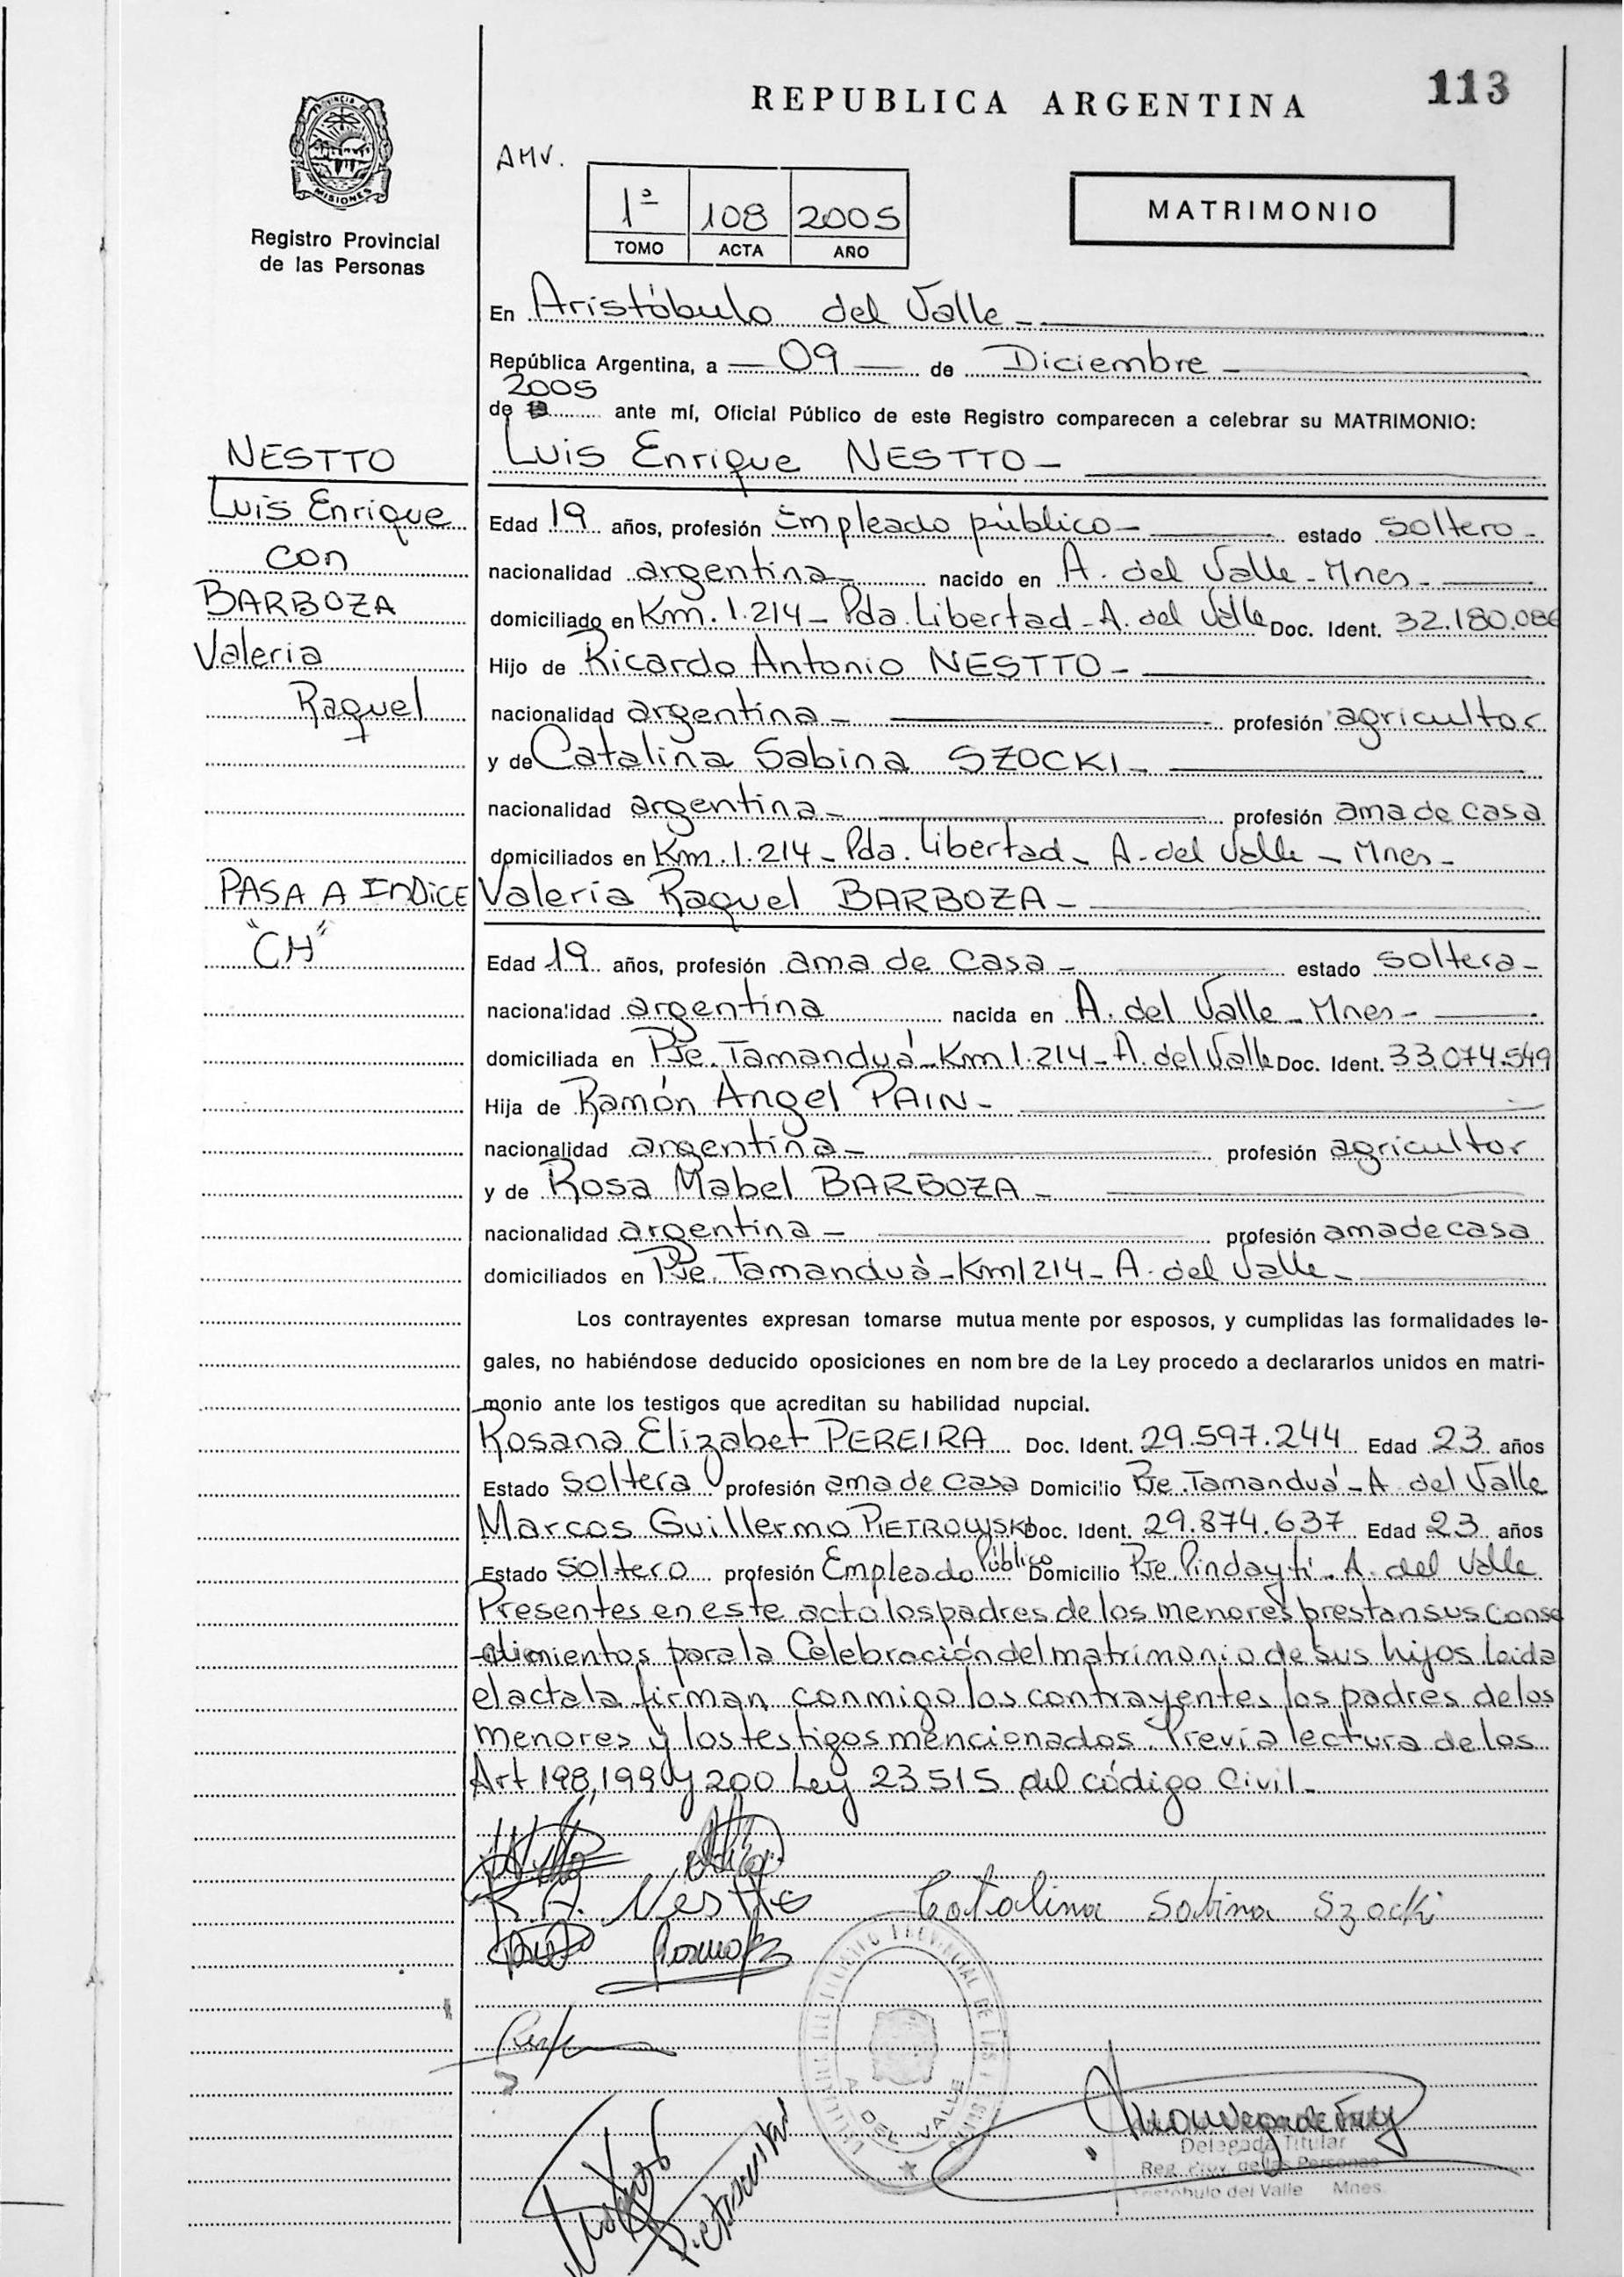 REPUBLICA ARGENTINA
113
PROVINCIA DE
MISIONES
Registro Provincial
de las Personas
AMV.
1ª 108 2005
TOMO ACTA AÑO
MATRIMONIO
En Aristóbulo del Valle -
República Argentina, a - 09 - de Diciembre -
2005
de 19 ante mí, Oficial Público de este Registro comparecen a celebrar su MATRIMONIO:
NESTTO
Luis Enrique
con
BARBOZA
Valeria
Raquel
PASA A INDICE
"CH"
Luis Enrique NESTTO -
Edad 19 años, profesión Empleado público - estado soltero -
nacionalidad argentina - nacido en A. del Valle - Mnes -
domiciliado en Km. 1.214 - Pda. Libertad - A. del Valle Doc. Ident. 32.180.086
Hijo de Ricardo Antonio NESTTO -
nacionalidad argentina - profesión agricultor
y de Catalina Sabina SZOCKI -
nacionalidad argentina - profesión ama de casa
domiciliados en Km. 1.214 - Pda. Libertad - A. del Valle - Mnes -
Valeria Raquel BARBOZA -
Edad 19 años, profesión ama de casa - estado soltera -
nacionalidad argentina nacida en A. del Valle - Mnes -
domiciliada en Pje. Tamanduá - Km 1.214 - A. del Valle Doc. Ident. 33.074.549
Hija de Ramón Angel PAIN -
nacionalidad argentina - profesión agricultor
y de Rosa Mabel BARBOZA -
nacionalidad argentina - profesión ama de casa
domiciliados en Pje. Tamanduá - Km 1214 - A. del Valle -
Los contrayentes expresan tomarse mutua mente por esposos, y cumplidas las formalidades le-
gales, no habiéndose deducido oposiciones en nom bre de la Ley procedo a declararlos unidos en matri-
monio ante los testigos que acreditan su habilidad nupcial.
Rosana Elizabet PEREIRA Doc. Ident. 29.597.244 Edad 23 años
Estado soltera profesión ama de casa Domicilio Pje. Tamanduá - A. del Valle
Marcos Guillermo PIETROWSKI Doc. Ident. 29.874.637 Edad 23 años
Estado soltero profesión Empleado Público Domicilio Pje Pindaytí - A. del Valle
Presentes en este acto los padres de los menores prestan sus Conse
-ntimientos para la Celebración del matrimonio de sus hijos Leida
el acta la firman conmigo los contrayentes los padres de los
menores y los testigos mencionados. Previa lectura de los
Art 198, 199 y 200 Ley 23515 del código Civil -
R.A. Nestto Catalina Sabina Szocki
A. DEL VALLE
Marcos
Pietrowski
Delegada Titular
Reg. Prov. de las Personas
Aristóbulo del Valle Mnes.